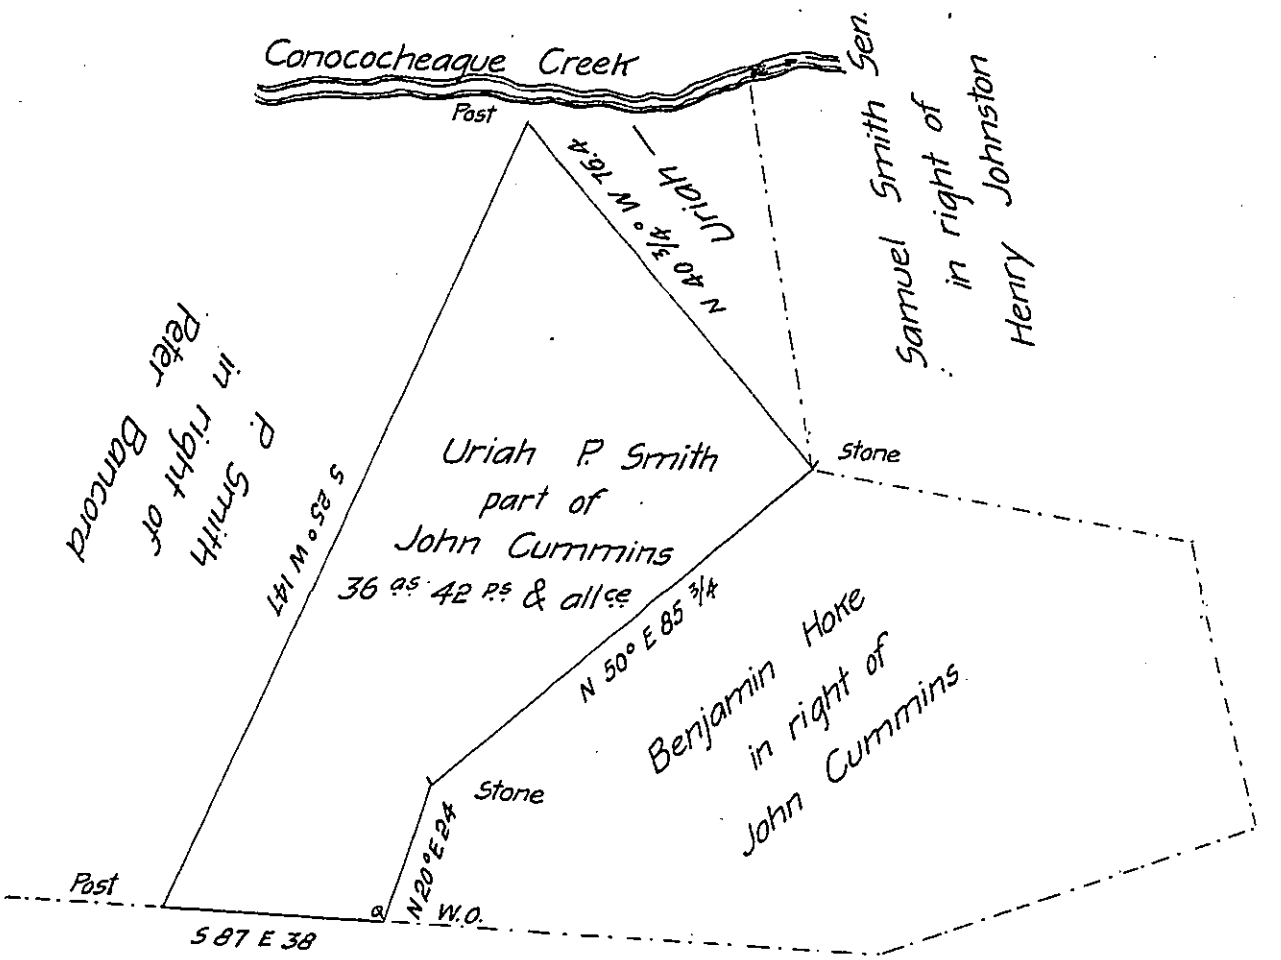 Conococheague Creek
Post
N 40 3/4° W 76.4
Uriah
Samuel Smith Sen.
in right of
Henry Johnston
P. Smith
in right of
Peter Bancord
S 25° W 147
Uriah P. Smith
part of
John Cummins
36 as. 42 ps & allce
Stone
N 50° E 85 3/4
Benjamin Hoke
in right of
John Cummins
Stone
N 20° E 24
Post
W.O.
S 87 E 38